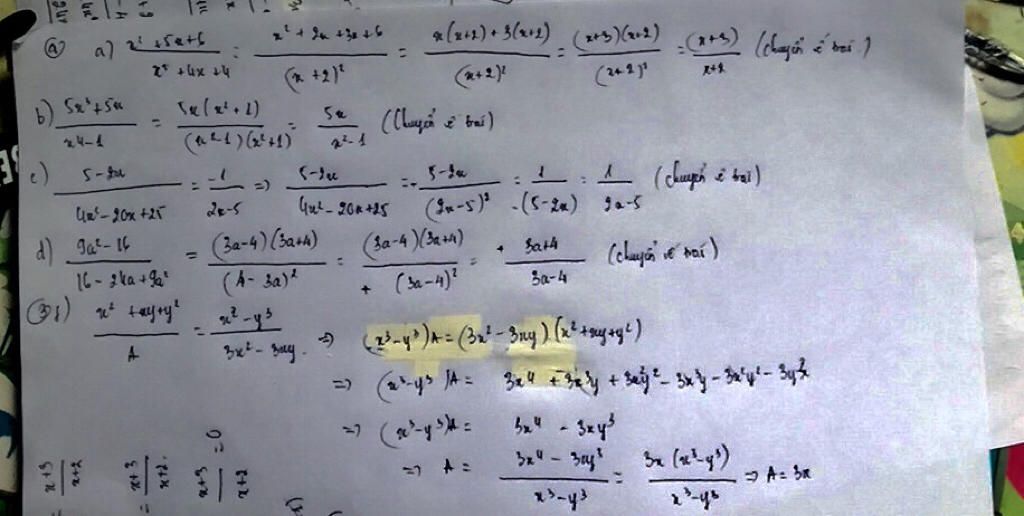 ② a) x²+5x+6/x²+4x+4 = x²+2x+3x+6/(x+2)² = x(x+2)+3(x+2)/(x+2)² = (x+3)(x+2)/(x+2)² = (x+3)/x+2 (chuyển vế trái)
b) 5x³+5x/x4-1 = 5x(x²+1)/(x²-1)(x²+1) = 5x/x²-1 (Chuyển vế trái)
c) 5-2x/4x²-20x+25 = -1/2x-5 => 5-2x/4x²-20x+25 = 5-2x/(2x-5)² = 1/-(5-2x) = 1/2x-5 (chuyển vế trái)
d) 9a²-16/16-24a+9a² = (3a-4)(3a+4)/(4-3a)² = (3a-4)(3a+4)/(3a-4)² = 3a+4/3a-4 (chuyển vế trái)
③ 1) x²+xy+y²/A = x³-y³/3x²-3xy => (x³-y³)A = (3x²-3xy)(x²+xy+y²)
=> (x³-y³)A = 3x⁴+3x³y+3x²y²-3x³y-3x²y²-3y³x
=> (x³-y³)A = 3x⁴-3xy³
=> A = 3x⁴-3xy³/x³-y³ = 3x(x³-y³)/x³-y³ => A=3x
x+3/x+2
x+3/x+2
x+3/x+2 =0